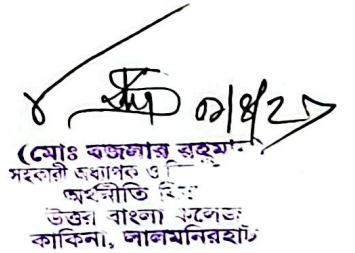 (মোঃ বজলার রহমান
সহকারী অধ্যাপক ও
অর্থনীতি
উত্তর বাংলা কলেজ
কাকিনা, লালমনিরহাট